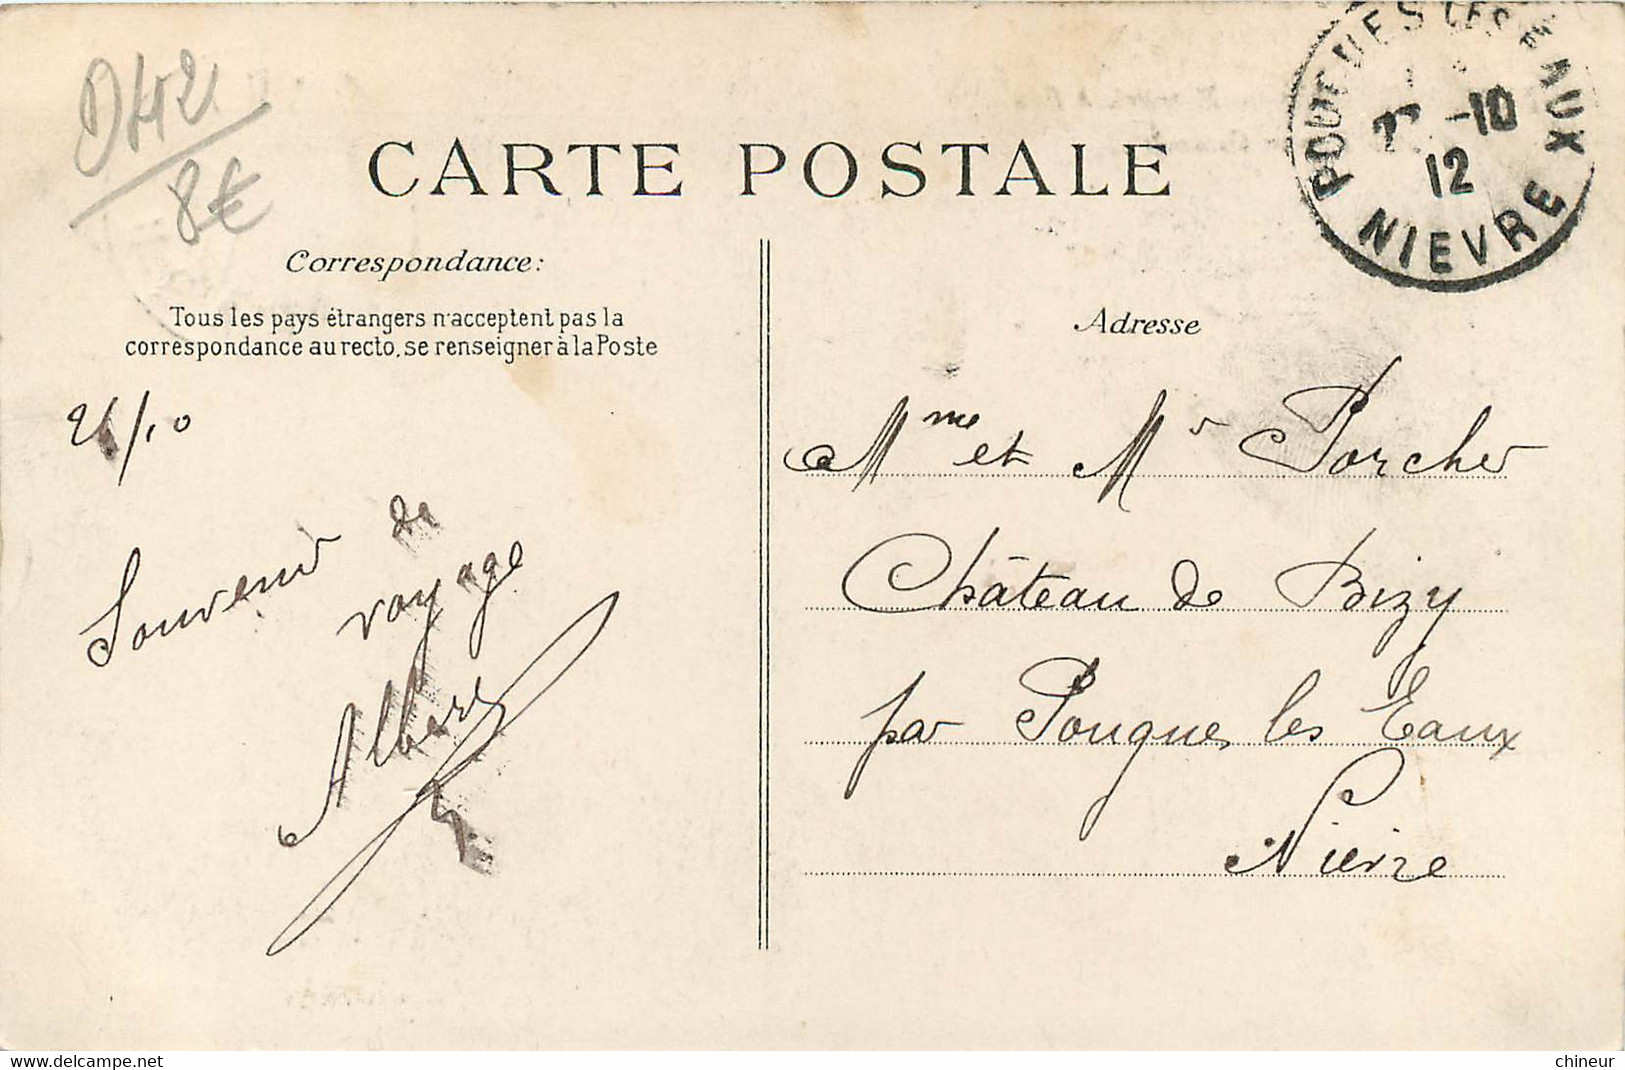 D42
8€
CARTE POSTALE
POUGUES LES EAUX
-10
12
NIEVRE
Correspondance:
Tous les pays étrangers n'acceptent pas la
correspondance au recto, se renseigner à la Poste
Adresse
26/10
Souvenir de
voyage
Albert
Mme et Mr Porcher
Château de Bizy
par Pougues les Eaux
Nièvre
www.delcampe.net
chineur